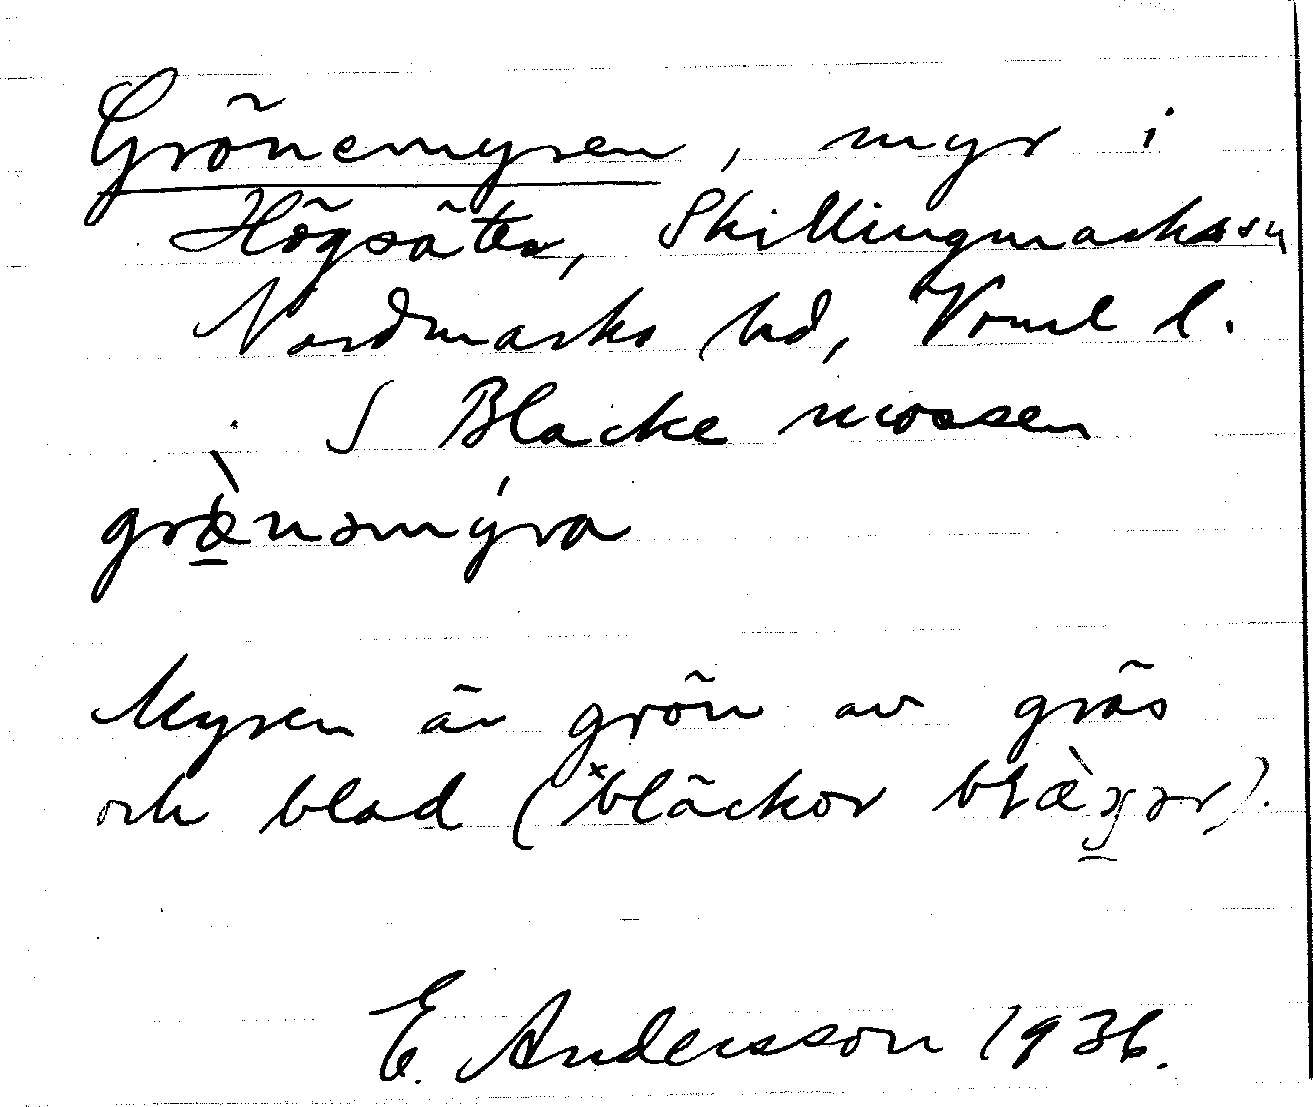 Grönemyren, myr i
Högsäter, Skillingmarks sn
Nordmarks hd, Vrml l.
S Blacke mossen
græ̀nəmýra
Myren är grön av gräs
och blad (ˣbläckor
E. Andersson 1936.